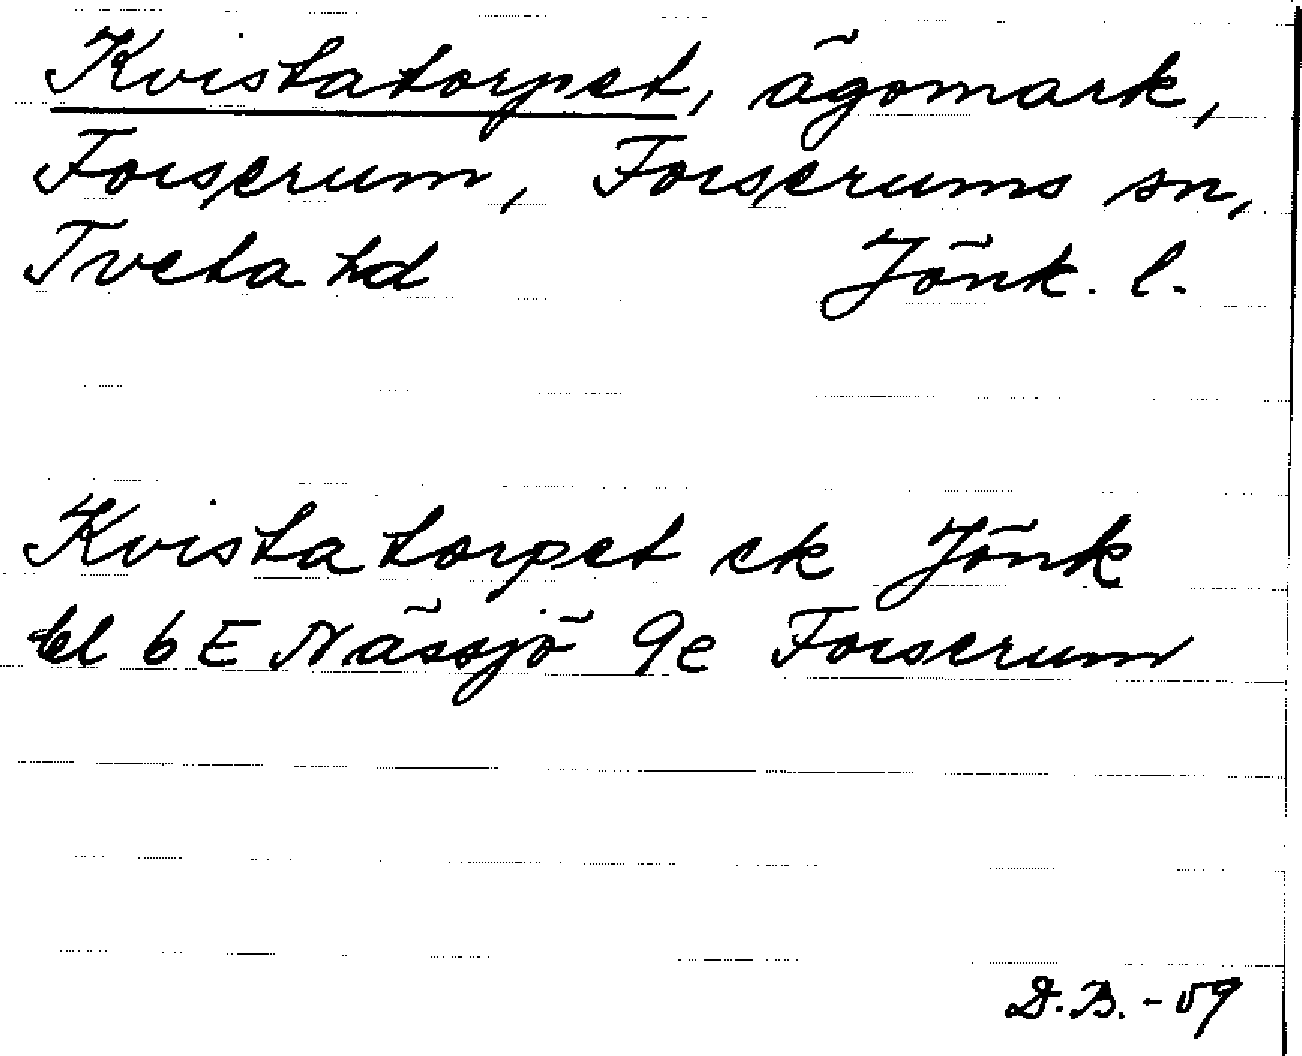 Kvistatorpet, ägomark,
Forserum, Forserums sn,
Tveta hd Jönk. l.
Kvistatorpet ek Jönk
bl 6 E Nässjö 9e Forserum
D.B. - 59